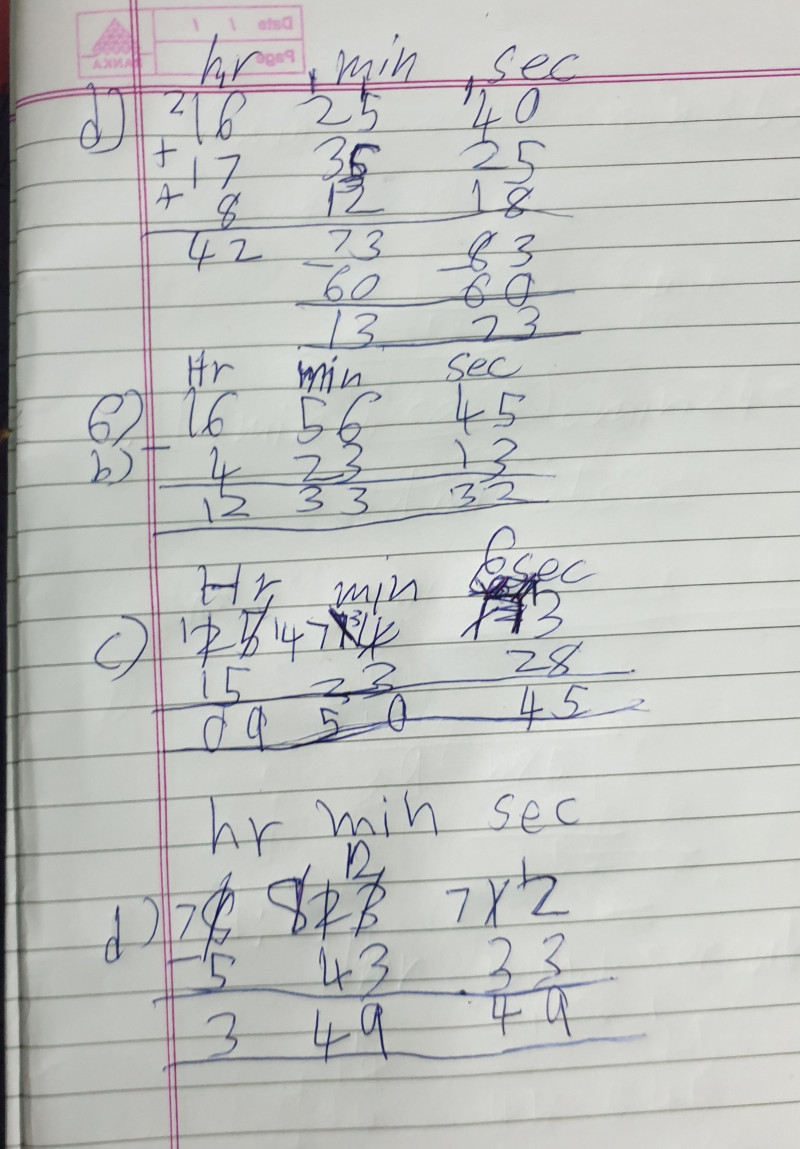 Date / /
Page
hr min sec
d) ²16 ¹25 ¹40
+ 17 35 25
+ 8 12 18
42 73 83
- 60 - 60
13 23
Hr min sec
6) 16 56 45
b) - 4 23 13
12 33 32
Hr min sec
c)
15 23 28
09 50 45
hr min sec
12
d)
- 5 43 33
3 49 49